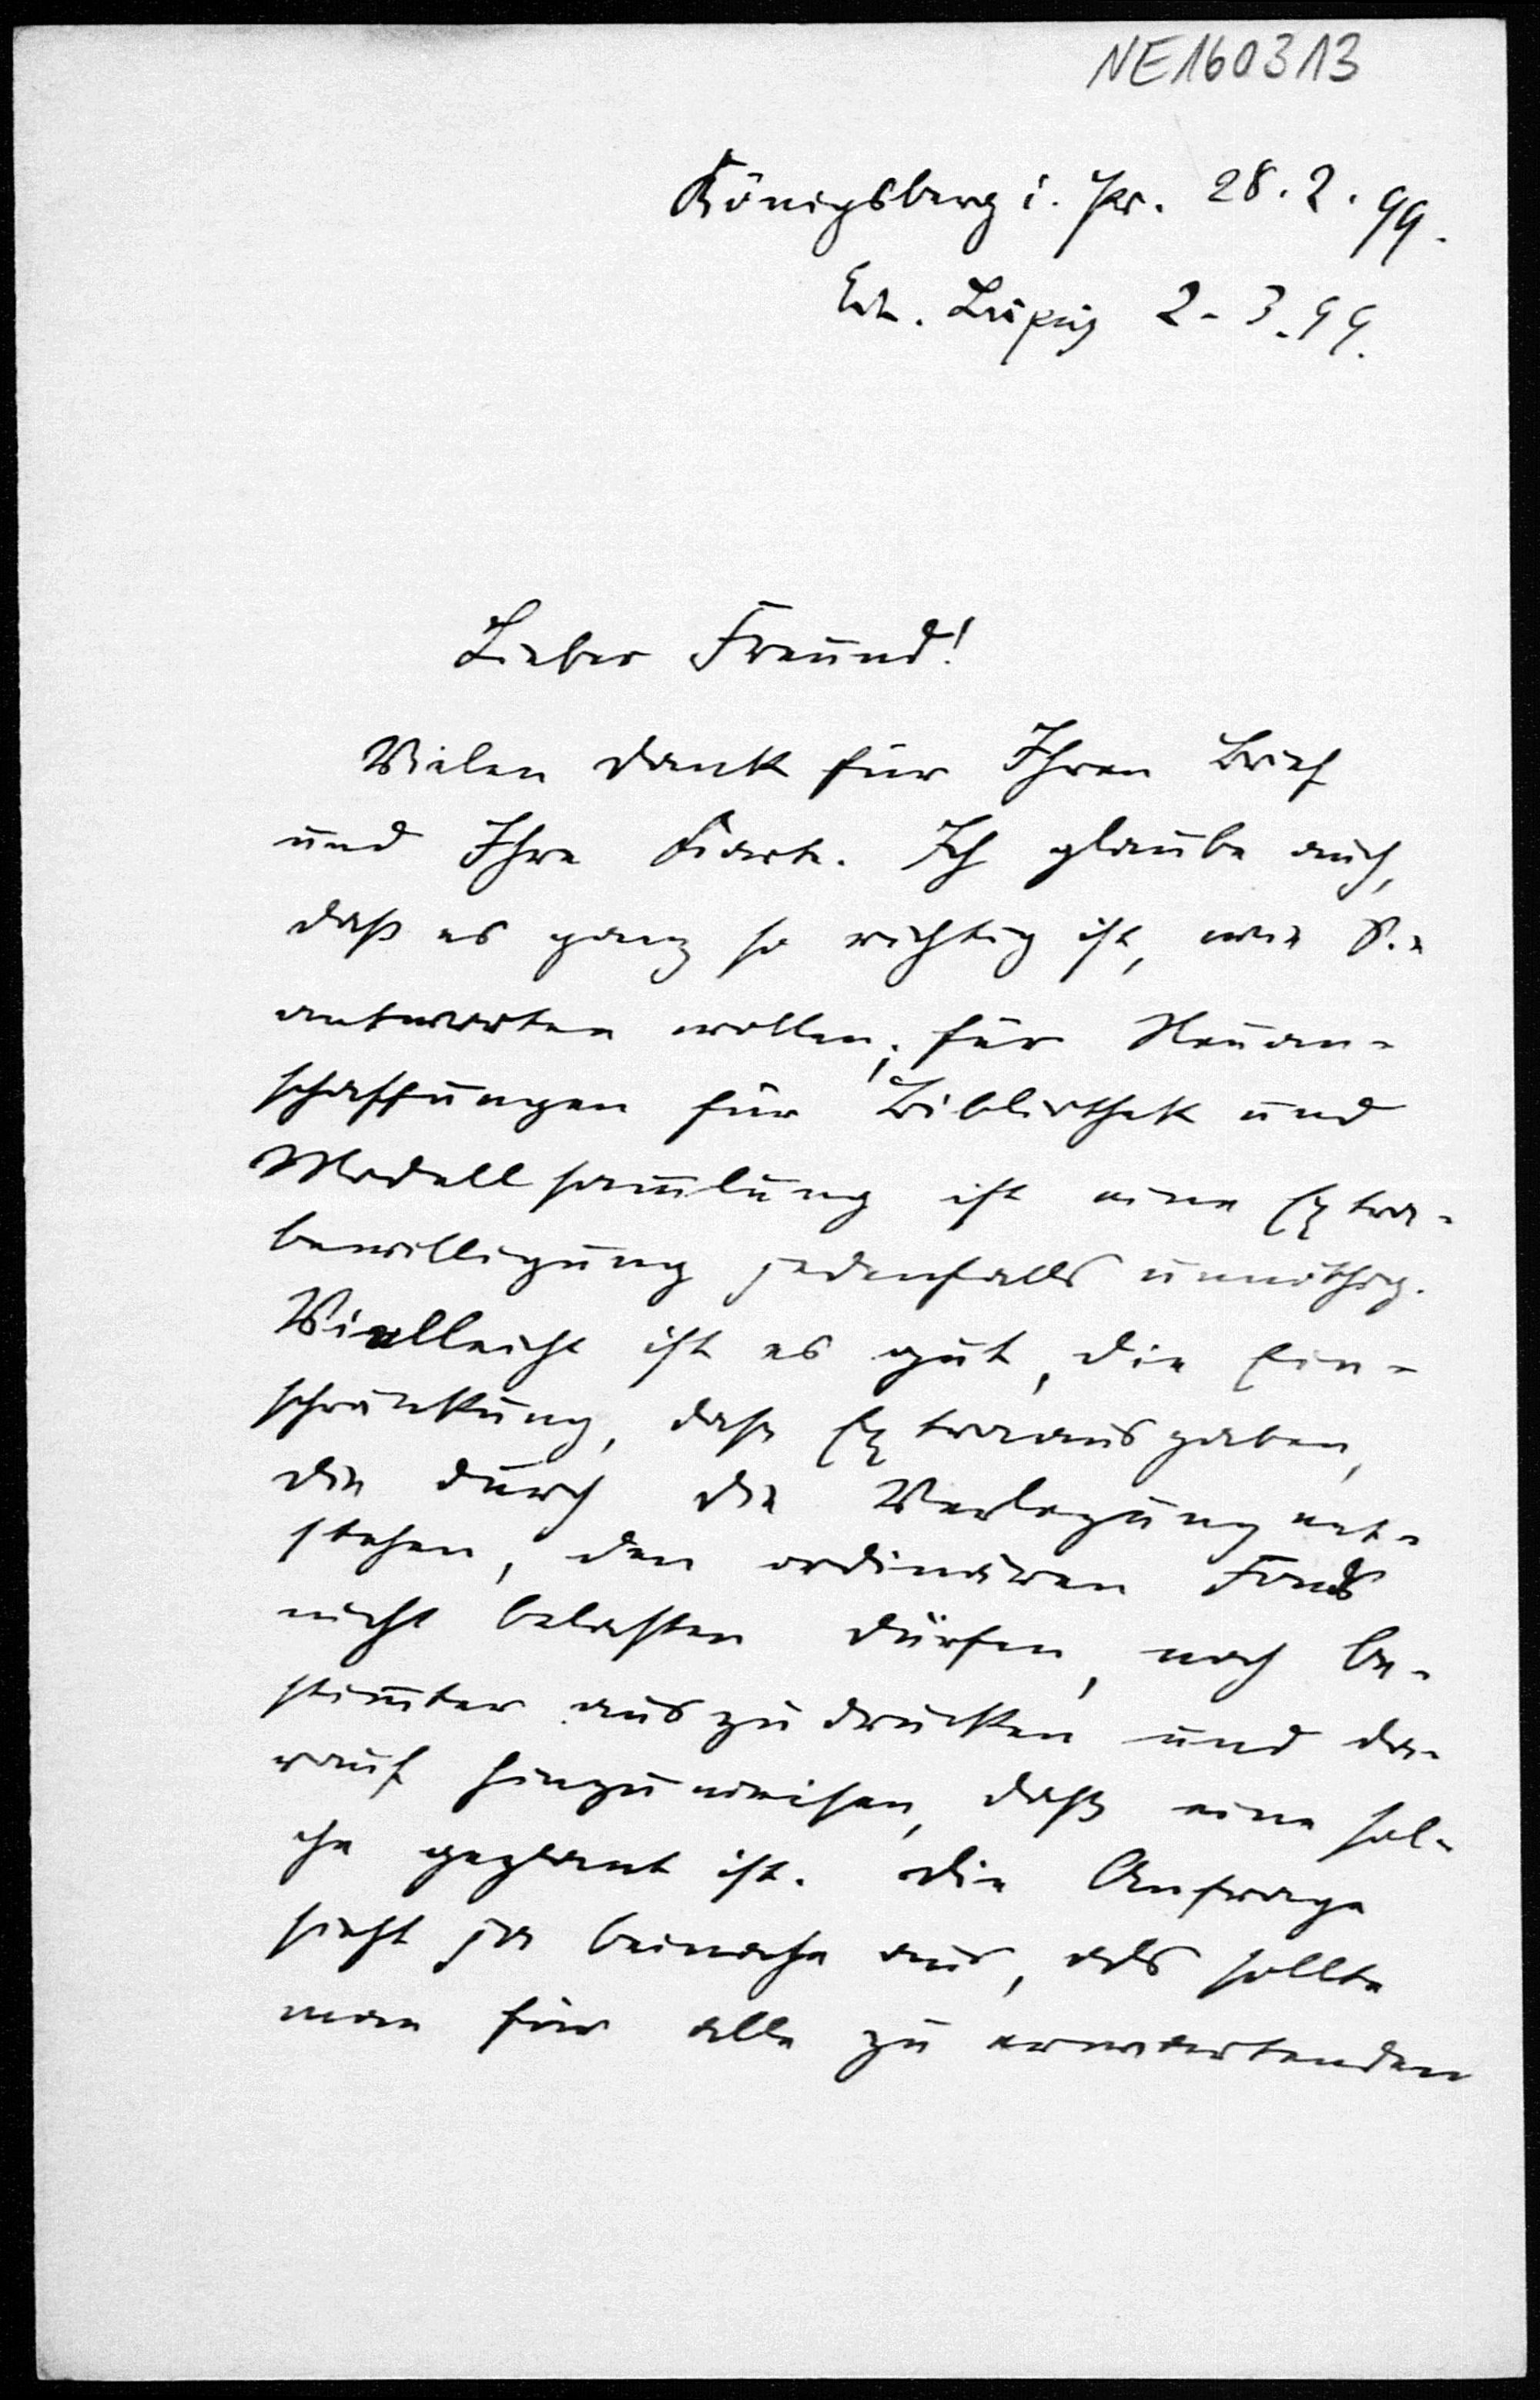 NE160313
Königsberg i. Pr. 28.2.99.
Erh. Leipzig 2.3.99.
Lieber Freund!
Vielen Dank für Ihren Brief
und Ihre Karte. Ich glaube auch,
daß es ganz so richtig ist, wie Sie
antworten wollen; für Neuan-
schaffungen für Bibliothek und
Modellsammlung ist eine Extra-
bewilligung jedenfalls unnöthig.
Vielleicht ist es gut, die Ein-
schränkung, daß Extraausgaben,
die durch die Verlegung ent-
stehen, den ordinären Fonds
nicht belasten dürfen, noch be-
stimmter auszudrücken und da-
rauf hinzuweisen, daß eine sol-
che geplant ist. Die Anfrage
sieht ja beinahe aus, als sollte
man für alle zu erwartenden